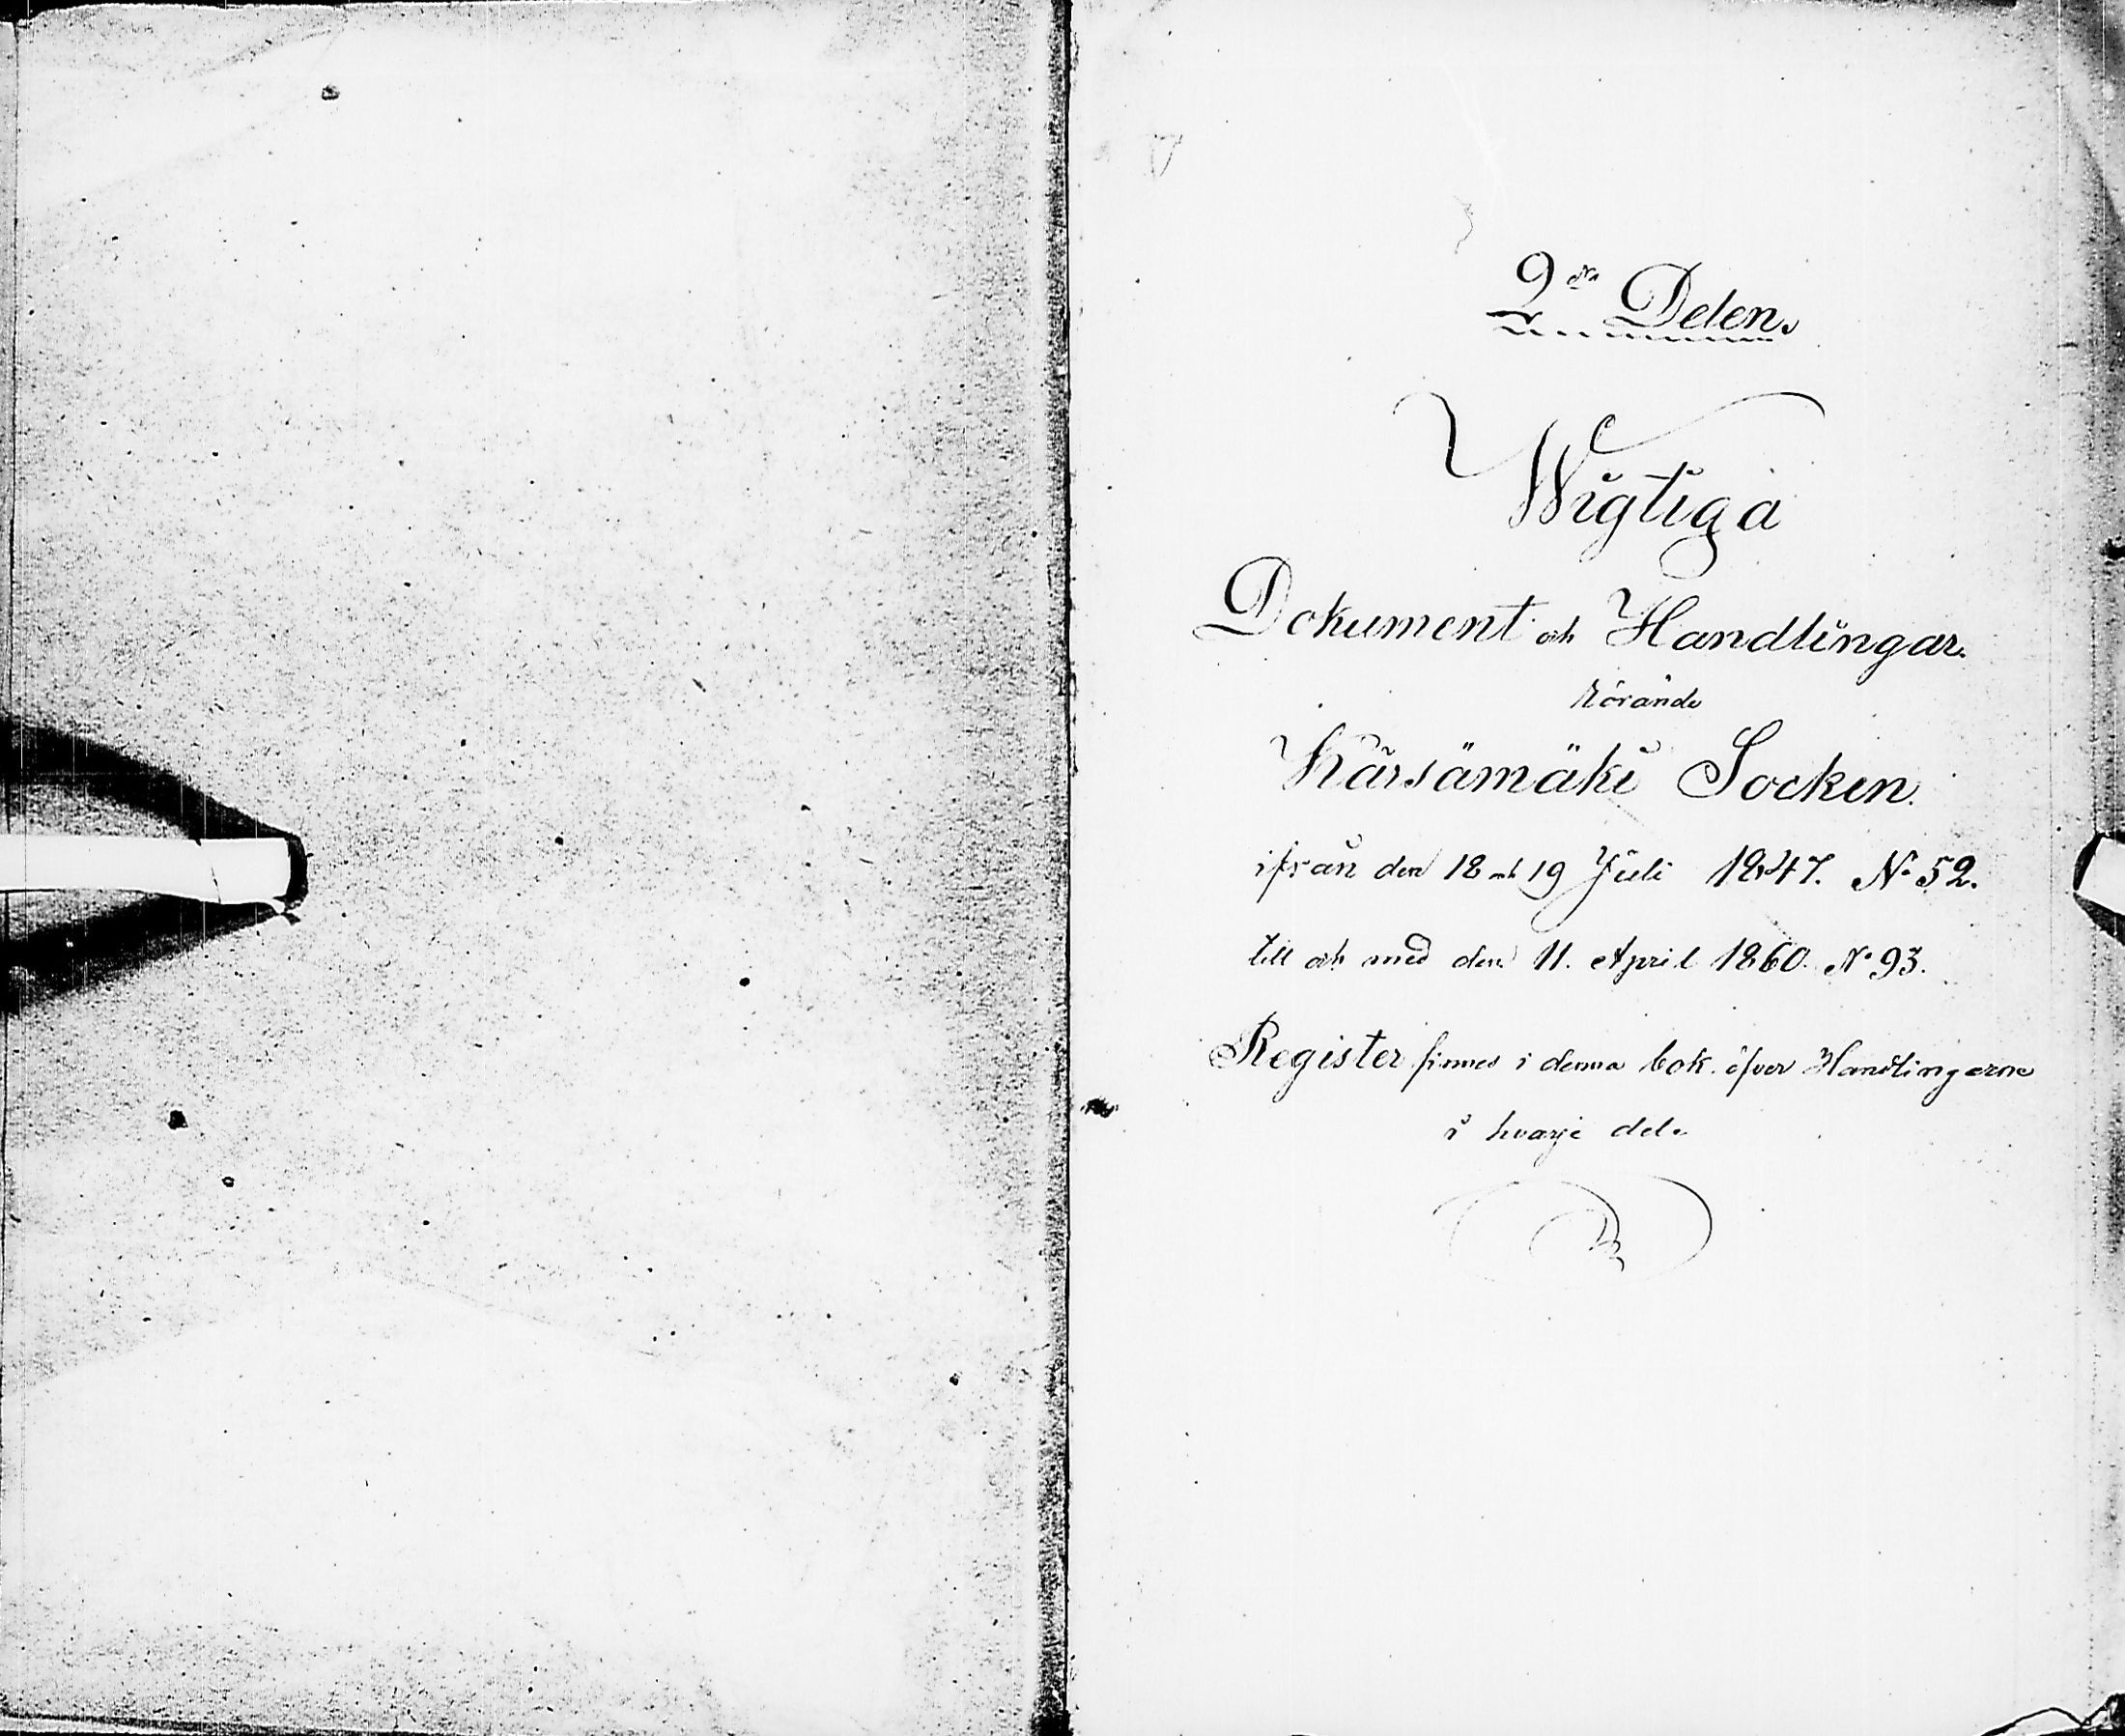 2dra Delen.
Wigtiga
Dokument och Handlingar.
Rörande
Kärsämäki Socken.
ifrån den 18 och 19 Juli 1847. No 52.
till och med den 11. April 1860. No 93.
Register finnes i denna bok öfver Handlingarne
i hvarje del.